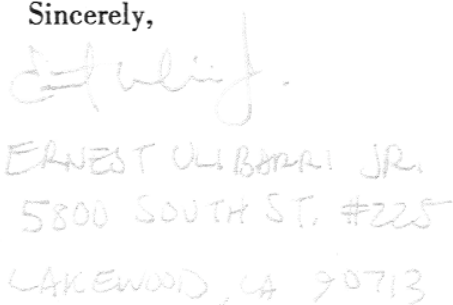 Sincerely,
ERNEST ULIBARRI JR.
5800 SOUTH ST. #225
LAKEWOOD, CA 90713